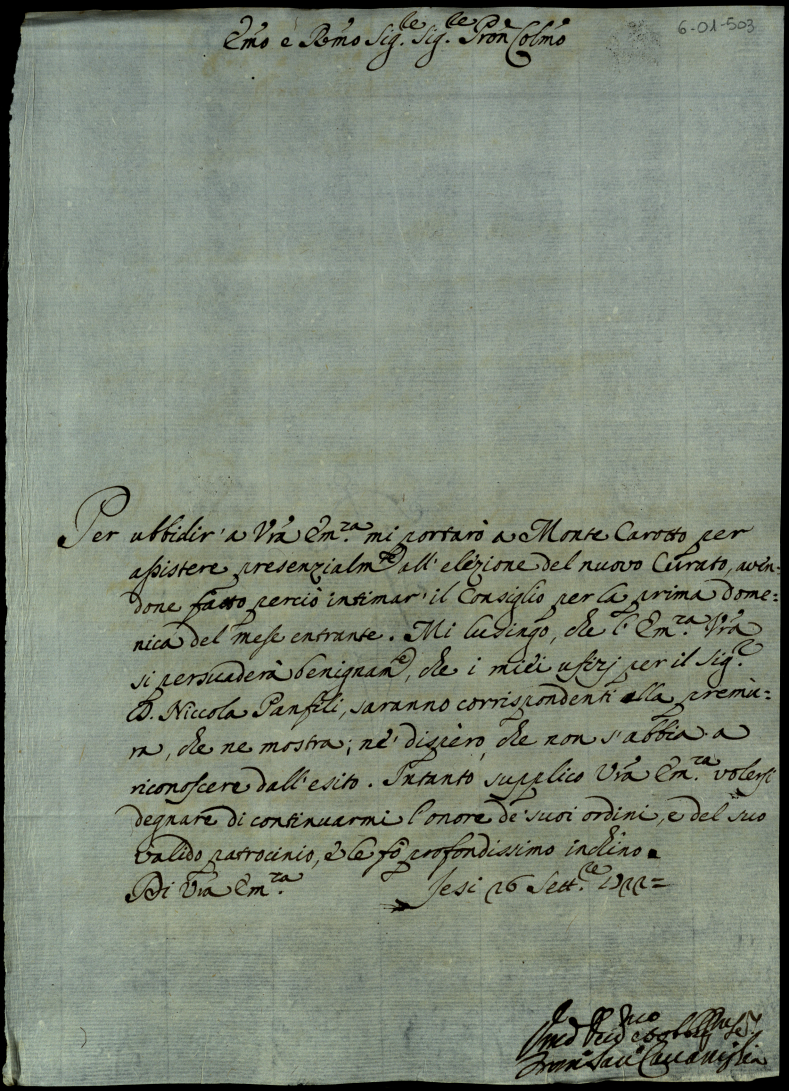 6-01-503
Emo e Rmo Sig.re Sig.re Pron Colmo
Per ubbidir' a Vra Em.za mi portarò a Monte Carotto per
assistere presenzialm.te all' elezione del nuovo Curato, aven-
done fatto perciò intimar' il Consiglio per la prima dome=
nica del mese entrante. Mi lusingo, che l' Em.za Vra
si persuaderà benignam.e, che i miei ufizj per il Sig.r
D. Niccola Panfili, saranno corrispondenti alla premu=
ra, che ne mostra; nè dispero, che non s' abbia a
riconoscere dall' esito. Intanto supplico Vra Em.za volersi
degnare di continuarmi l' onore de' suoi ordini, e del suo
valido patrocinio, e le fò profondissimo inchino.
Di Vra Em.za Jesi 26 Sett.re